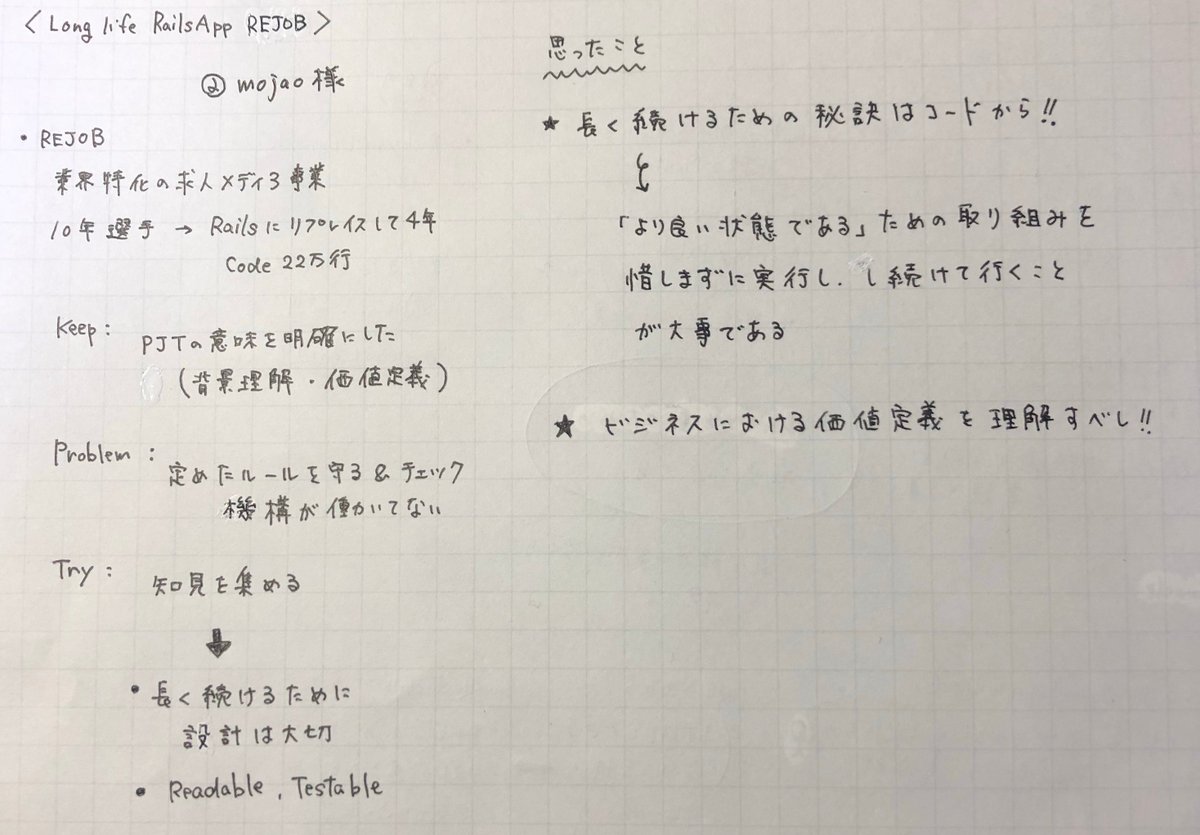 < Long life RailsApp REJOB >
② mojao 様
・REJOB
業界特化の求人メディア事業
10年選手 → Railsにリプレイスして4年
Code 22万行
Keep :
PJTの意味を明確にした
(背景理解・価値定義)
Problem :
定めたルールを守る & チェック
機構が働いてない
Try :
知見を集める
⬇
・長く続けるために
設計は大切
・Readable , Testable
思ったこと
★ 長く続けるための秘訣はコードから!!
↓
「より良い状態である」ための取り組みを
惜しまずに実行し、し続けて行くこと
が大事である
★ ビジネスにおける価値定義を理解すべし!!